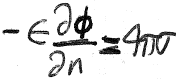 -ϵ ∂ϕ/∂n = 4πσ